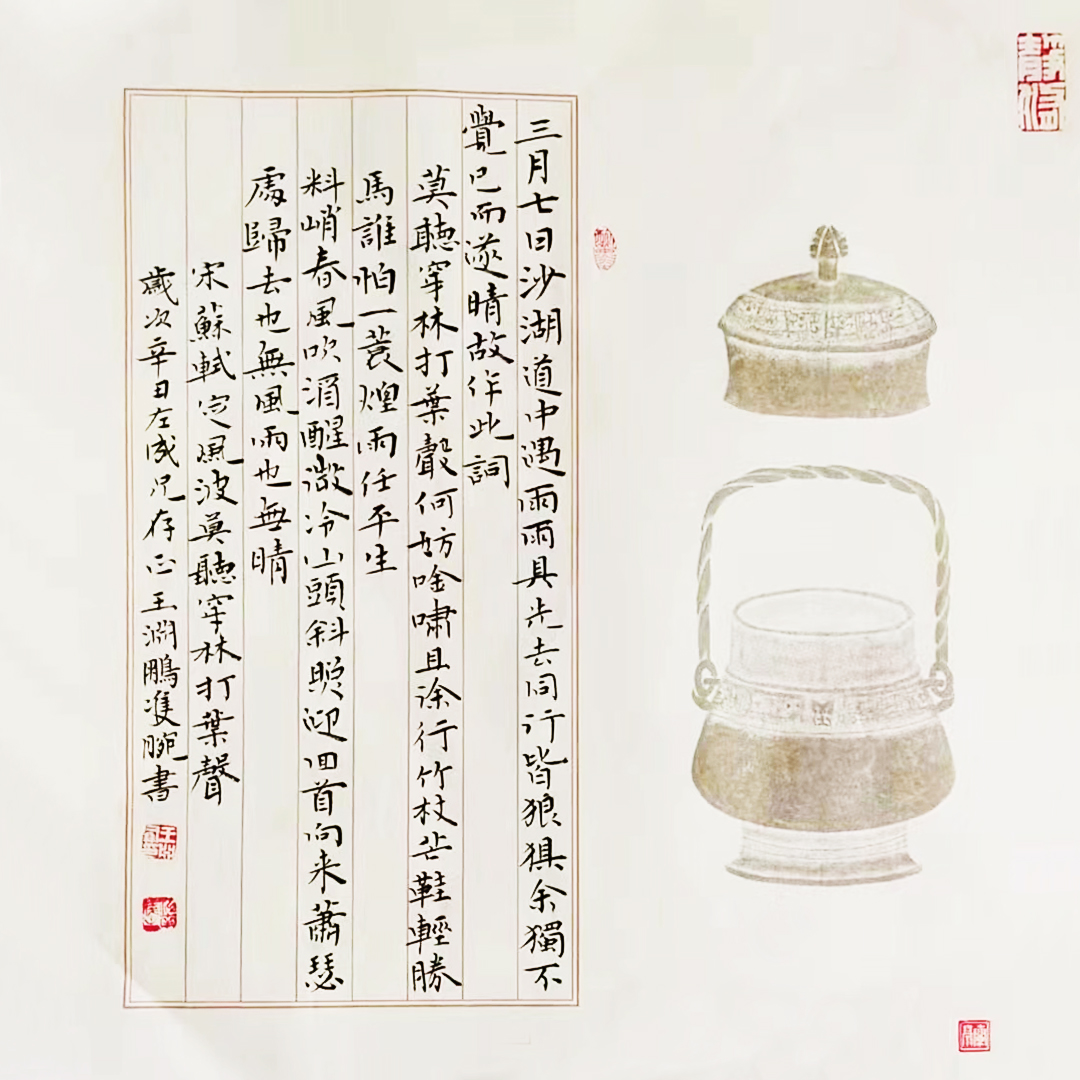 三月七日沙湖道中遇雨雨具先去同行皆狼狽余獨不
覺已而遂晴故作此詞
莫聽穿林打葉聲何妨吟嘯且徐行竹杖芒鞋輕勝
馬誰怕一蓑煙雨任平生
料峭春風吹酒醒微冷山頭斜照迎回首向来蕭瑟
處歸去也無風雨也無晴
宋蘇軾定風波莫聽穿林打葉聲
歲次辛丑左成兄存正王淵鵬雙腕書